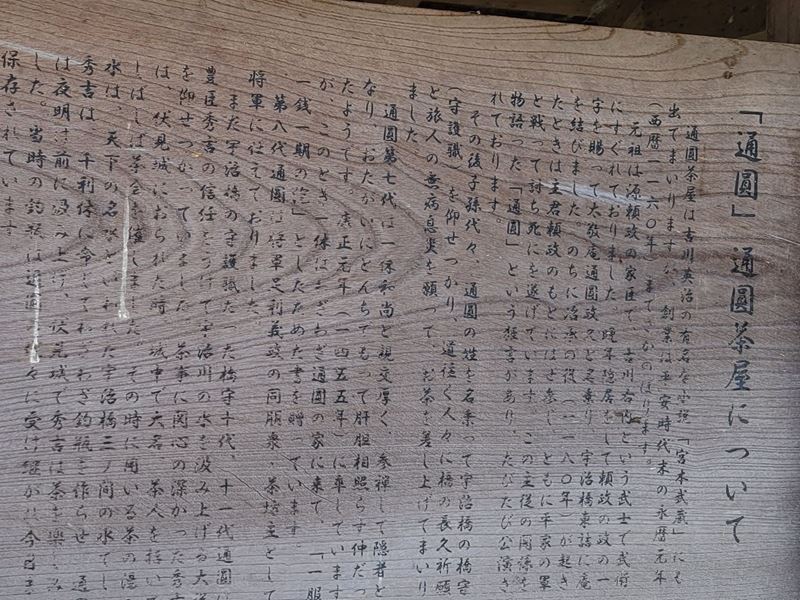 「通圓」通圓茶屋について
通圓茶屋は吉川英治の有名な小説「宮本武蔵」にも
出てまいりますが、創業は平安時代末の永暦元年
（西暦一一六〇年）までさかのぼります。
元祖は源頼政の家臣で、古川右内という武士で武術
にすぐれておりました。晩年隠居をして頼政の政の一
字を賜って太敬庵通圓政久と名乗り、宇治橋東詰に庵
を結びました。のちに治承の役（一一八〇年）が起き
たときは主君頼政のもとにはせ参じ、ともに平家の軍
と戦って討ち死にを遂げています。この主従の関係を
物語った「通圓」という狂言があり、たびたび公演さ
れております。
その後子孫代々、通圓の姓を名乗って宇治橋の橋守
（守護職）を仰せつかり、道往く人々に橋の長久祈願
と旅人の無病息災を願って、お茶を差し上げてまいり
ました。
通圓第七代は一休和尚と親交厚く、参禅して隠者と
なり、おたがいにとんちでもって肝胆相照らす仲だっ
たようです。康正元年（一四五五年）に卒しています
が、このとき一休はわざわざ通圓の家に来て、「一服
一銭一期の
」としたためた書を贈っています。
第八代通圓は将軍足利義政の同朋衆、茶坊主として
将軍に仕えておりました。
また宇治橋の守護職だった橋守十代、十一代通圓は
豊臣秀吉の信任をうけて、宇治川の水を汲み上げる大役
を仰せつかっていました。茶事に関心の深かった秀吉
は、伏見城におられた時、城中で大名、茶人を招いて
しばしば茶会を催しました。その時に用いる茶の湯
水は、天下の名水といわれた宇治橋三ノ間の水でし
秀吉は、千利休に命じてわざわざ釣瓶を作らせ、通
は夜明け前に汲み上げ、伏見城で秀吉は茶を楽しみ
した。当時の釣瓶は通圓
々に受け継がれ今日ま
保存されています